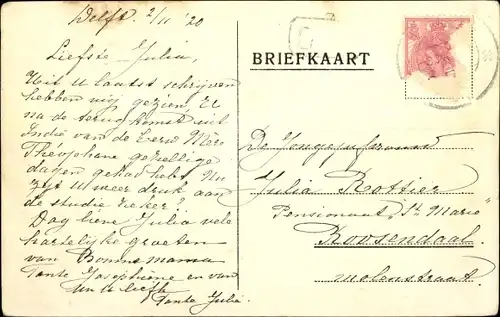 Delft. 2/11 '20
Liefste Julia,
Uit u laatst schrijven
hebben wij gezien, U
na de terug komst uit
Indië van de Eerw Mère
Théophane gezellige
dagen gehad hebt. Nu
zijt U weer druk aan
de studie zeker?
Dag lieve Julia vele
hartelijke groeten
van Bonne mama
Tante Josephine en van
Tante Julia
BRIEFKAART
De Jongejufvrouw
Julia Rottier
Pensionaat "St Marie"
Roosendaal.
Molenstraat.